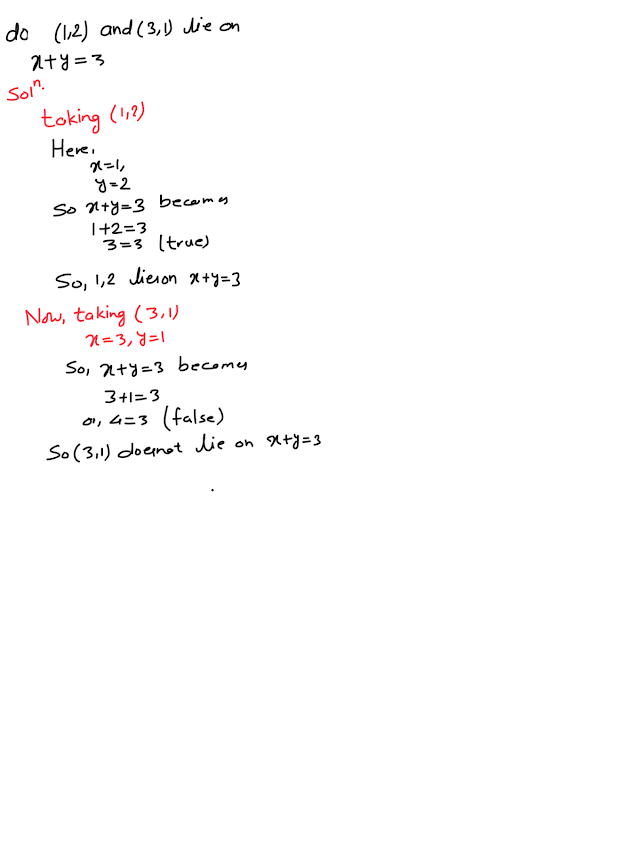 do (1,2) and (3,1) lie on
x+y=3
Solⁿ.
taking (1,2)
Here,
x=1,
y=2
So x+y=3 becomes
1+2=3
3=3 (true)
So, 1,2 lies on x+y=3
Now, taking (3,1)
x=3, y=1
So, x+y=3 becomes
3+1=3
or, 4=3 (false)
So (3,1) doesnot lie on x+y=3